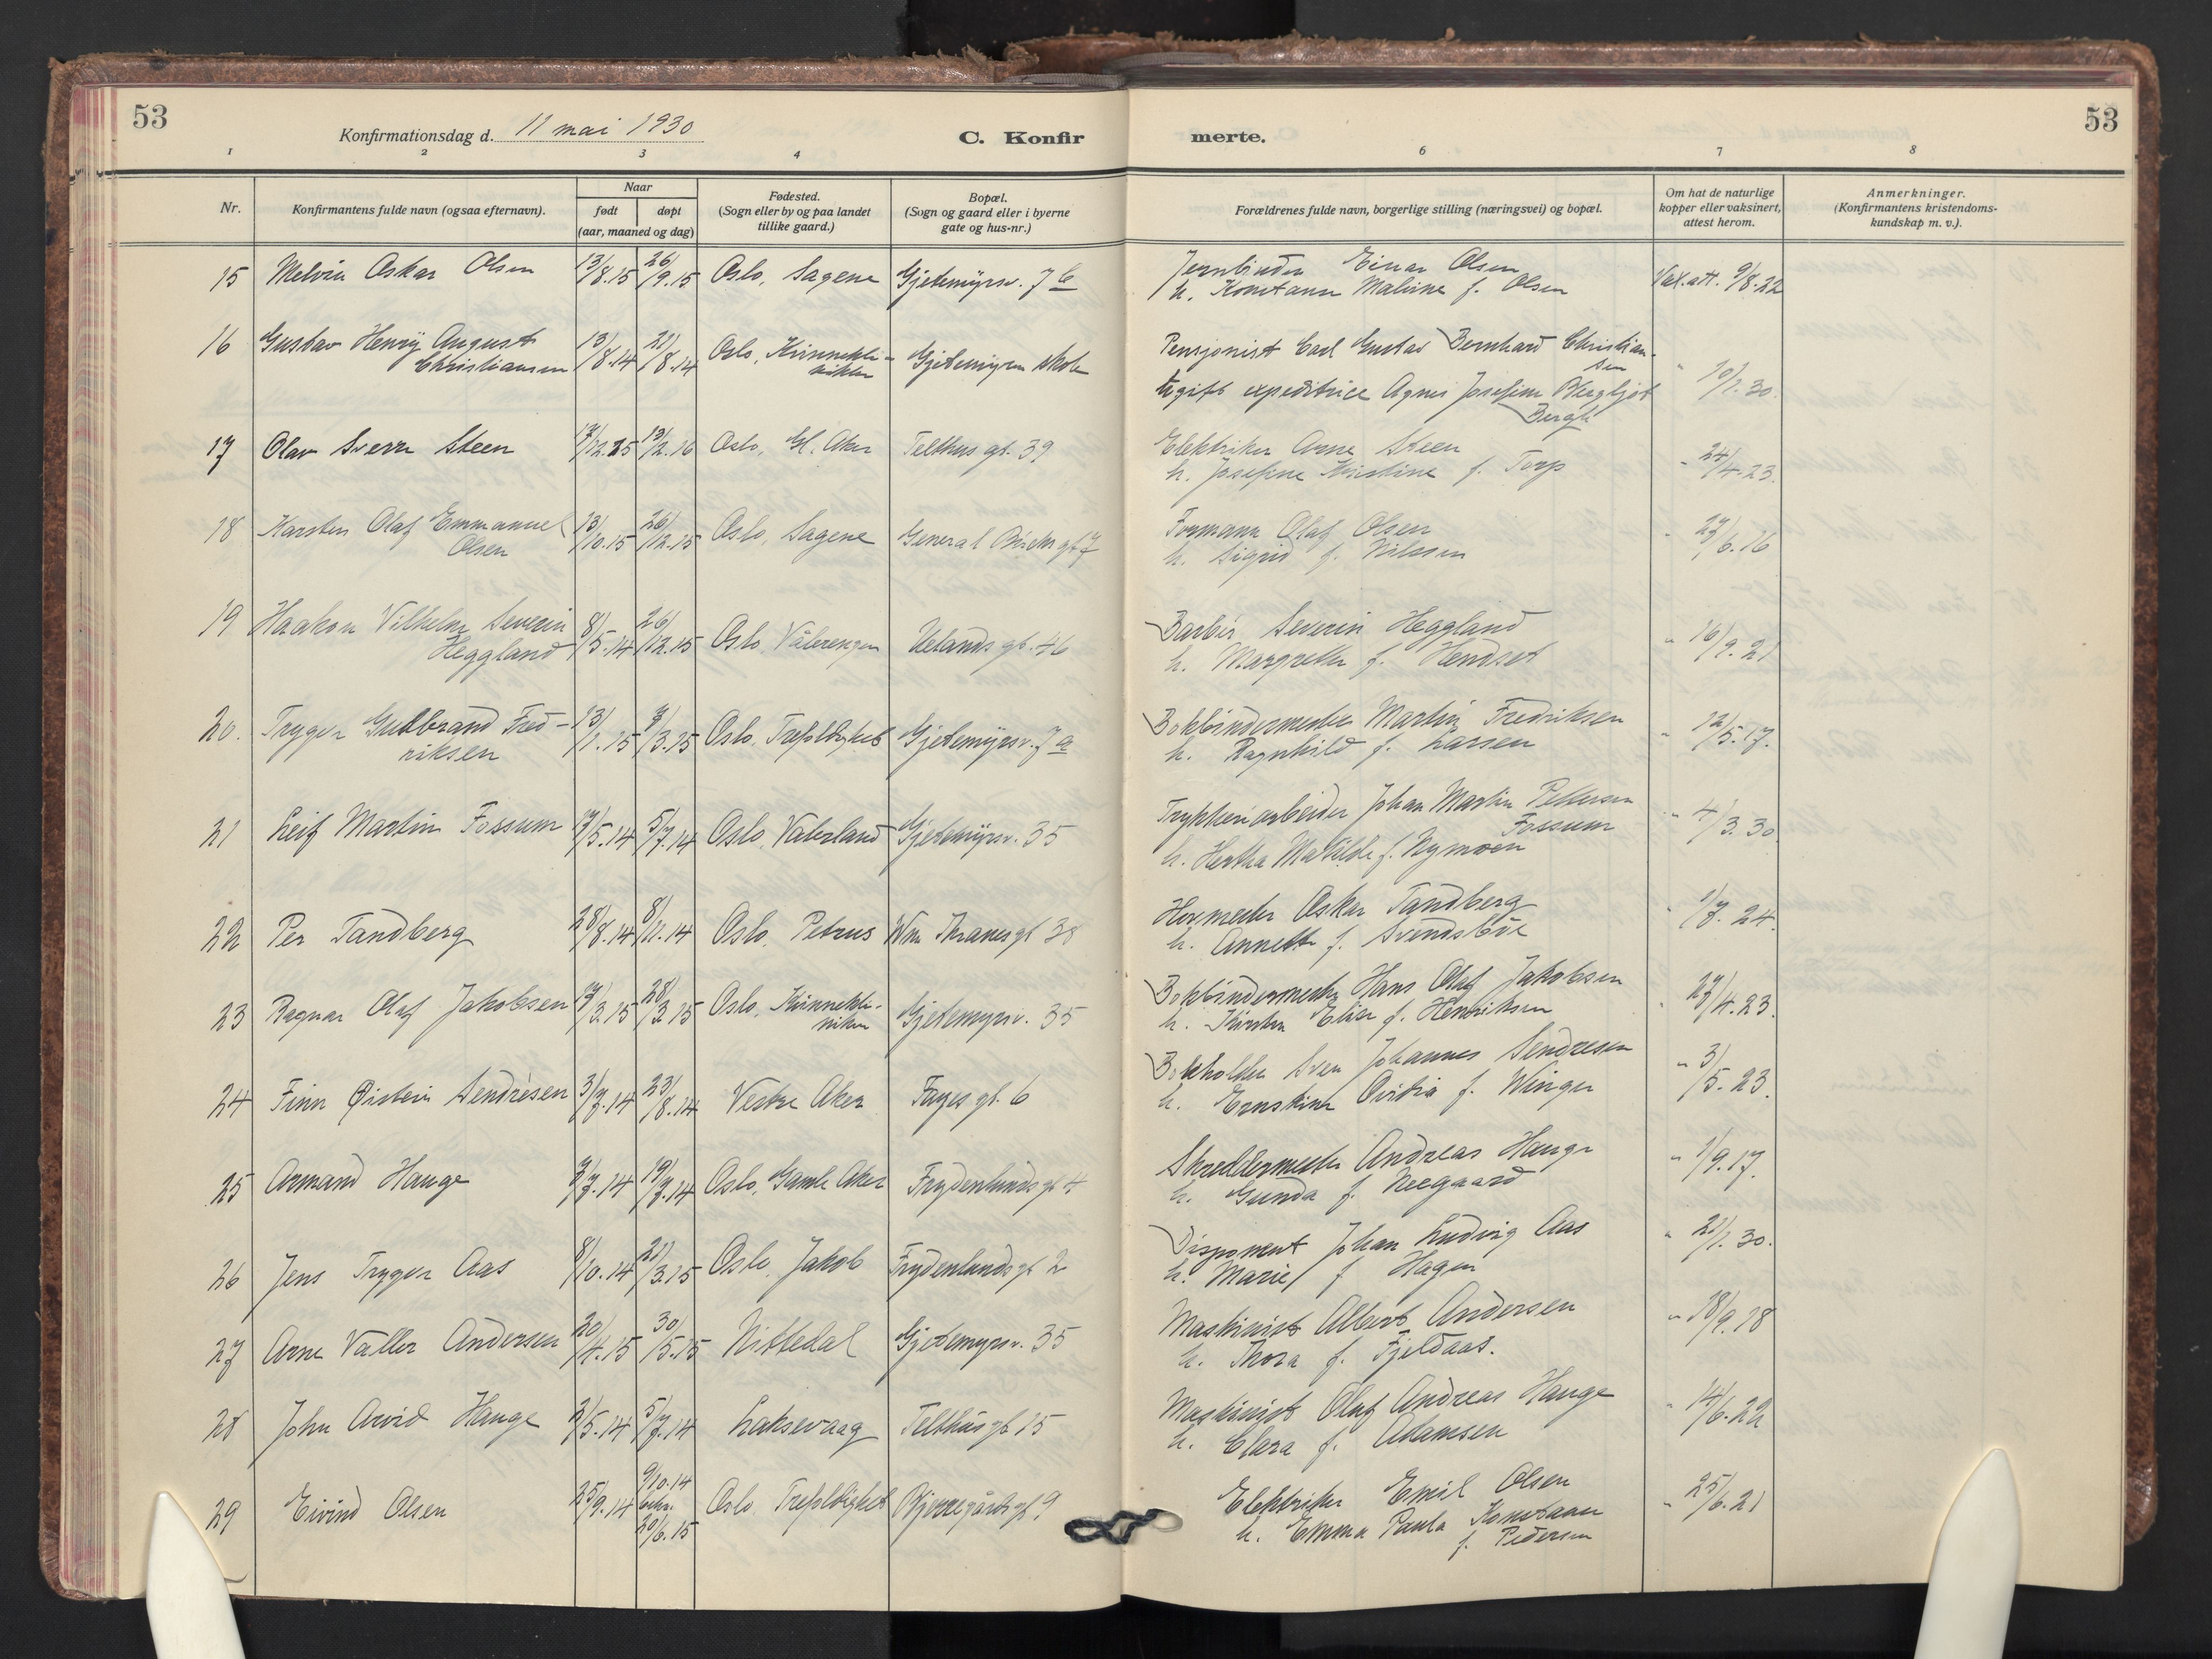 53
Konfirmationsdag d. 11 mai 1930
C. Konfir
merte.
53
1 2 3 4 6 7 8
Nr.
Konfirmantens fulde navn (ogsaa efternavn).
Naar
født døpt
(aar, maaned og dag)
Fødested.
(Sogn eller by og paa landet
tillike gaard.)
Bopæl.
(Sogn og gaard eller i byerne
gate og hus-nr.)
Forældrenes fulde navn, borgerlige stilling (næringsvei) og bopæl.
Om hat de naturlige
kopper eller vaksinert,
attest herom.
Anmerkninger.
(Konfirmantens kristendoms-
kundskap m. v.).
15 Melvin Oskar Olsen 13/8.15 26/9.15 Oslo, Sagene Gjetemyrsv. 7 b Jernbinder Einar Olsen Vax.att. 9/8.22
h. Konstanse Malvine f. Olsen
16 Gustav Henry August 13/8.14 21/8.14 Oslo, Kvinnekli- Gjetemyren skole Pensjonist Carl Gustav Bernhard Christian-
Christiansen nikken sen
ugift expeditrice Agnes Josefine Bergljot " 10/1.30.
Bergh
17 Olav Sverre Steen 17/12.15 13/2.16 Oslo, Gl. Aker Telthus gt. 39 Elektriker Arne Steen
h. Josefine Kristine f. Torp " 24/4.23.
18 Karsten Olaf Emmanuel 13/10.15 26/12.15 Oslo, Sagene General Birchs gt 7 Formann Olaf Olsen " 27/6.16
Olsen h. Sigrid f. Nilssen
19 Haakon Vilhelm Severin 8/5.14 26/12.15 Oslo Vålerengen Uelands gt. 46 Barbér Severin Heggland " 16/9.21
Heggland h. Margrethe f. Hendset
20. Trygve Gudbrand Fred- 13/1.15 7/3.15 Oslo, Trefoldighet Gjetemyrsv. 7 a Bokbindermester Martin Fredriksen " 12/5.17.
riksen h. Ragnhild f. Larsen
21 Leif Martin Fossum 17/5.14 5/7.14 Oslo, Vaterland Gjetemyrsv. 35 Trykkeriarbeider Johan Martin Pettersen " 4/3.30
Fossum
h. Hertha Matilde f. Nymoen
22 Per Tandberg 28/8.14 8/11.14 Oslo, Petrus Wm Thranes gt 38 Hovmester Oskar Tandberg " 1/7.24.
h. Annette f. Svendsböe
23 Ragnar Olaf Jakobsen 17/3.15 28/3.15 Oslo, Kvinnekli- Gjetemyrsv. 35 Bokbindermester Hans Olaf Jakobsen " 27/4.23.
niken h. Kirsten Elise f. Henriksen
24 Finn Øistein Sendresen 3/7.14 23/8.14 Vestre Aker Fayes gt. 6 Bokholder Sven Johannes Sendresen " 3/5.23.
h. Ernstine Ovidia f. Winger
25 Armand Hauge 7/7.14 19/7.14 Oslo, Gamle Aker Frydenlunds gt 4 Skreddermester Andreas Hauge " 1/9.17.
h. Gunda f. Neegaard
26 Jens Trygve Aas 8/10.14 21/3.15 Oslo, Jakob Frydenlunds gt 2 Disponent Johan Ludvig Aas " 21/1.30.
h. Marie f Hagen
27 Arne Valler Andersen 20/4.15 30/5.15 Nittedal Gjetemyrsv. 35 Maskinist Albert Andersen " 18/9.18
h. Thora f. Fjeldaas.
28 John Arvid Hauge 2/5.14 5/7.14 Laksevaag Telthus gt 15 Maskinist Olaf Andreas Hauge " 14/6.22
h. Clara f. Adamsen
29 Eivind Olsen 25/9.14 9/10.14 Oslo Trefoldighet Bjerregårds gt 9 Elektriker Emil Olsen " 25/6.21
20/6.15 h. Emma Paula Konstanse
f. Pedersen